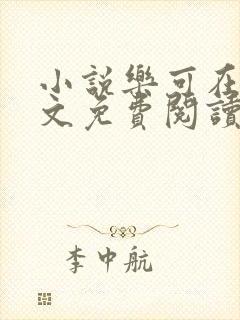 小說樂可在
文免費閱讀
李中航